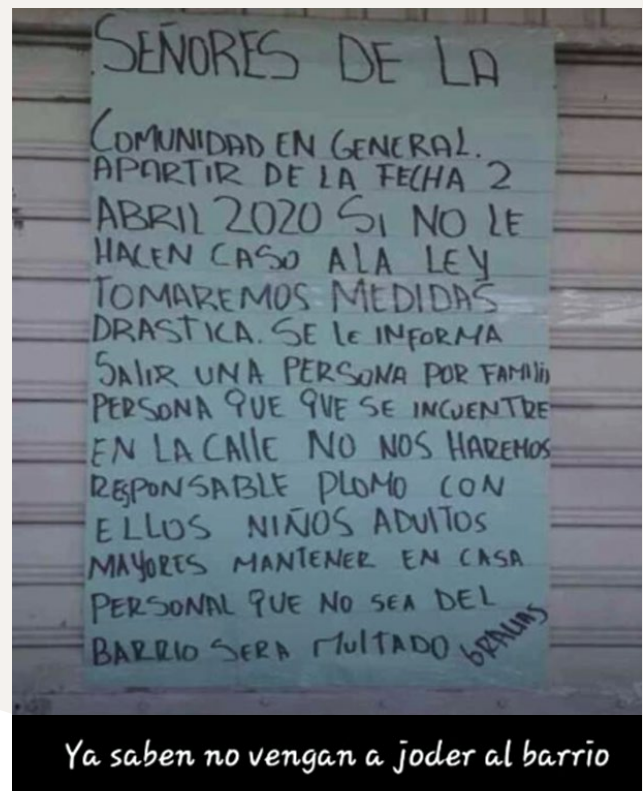 SEÑORES DE LA
COMUNIDAD EN GENERAL.
APARTIR DE LA FECHA 2
ABRIL 2020 SI NO LE
HACEN CASO ALA LEY
TOMAREMOS MEDIDAS
DRASTICA. SE LE INFORMA
SALIR UNA PERSONA POR FAMILIA
PERSONA QUE QUE SE INCUENTRE
EN LA CALLE NO NOS HAREMOS
RESPONSABLE PLOMO CON
ELLOS NIÑOS ADULTOS
MAYORES MANTENER EN CASA
PERSONAL QUE NO SEA DEL
BARRIO SERA MULTADO GRACIAS
Ya saben no vengan a joder al barrio